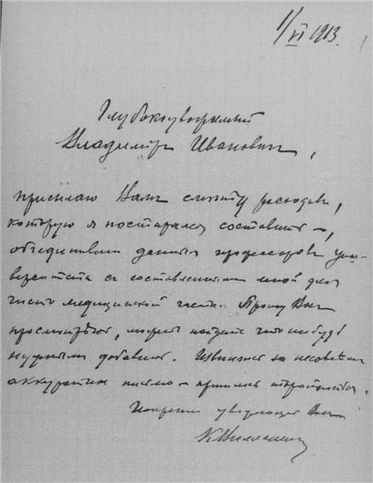 1/VI 1913.
Глубокоуважаемый
Владимир Иванович,
присылаю Вам смету расходов,
которую я постарался составить,
объединивши данные профессоров уни-
верситета с составленными мной для
чисто медицинской части. Прошу Вас
просмотреть, может найдете что нибудь
нужным добавить. Извините за не совсем
аккуратное письмо –
Искренно уважающий Вас